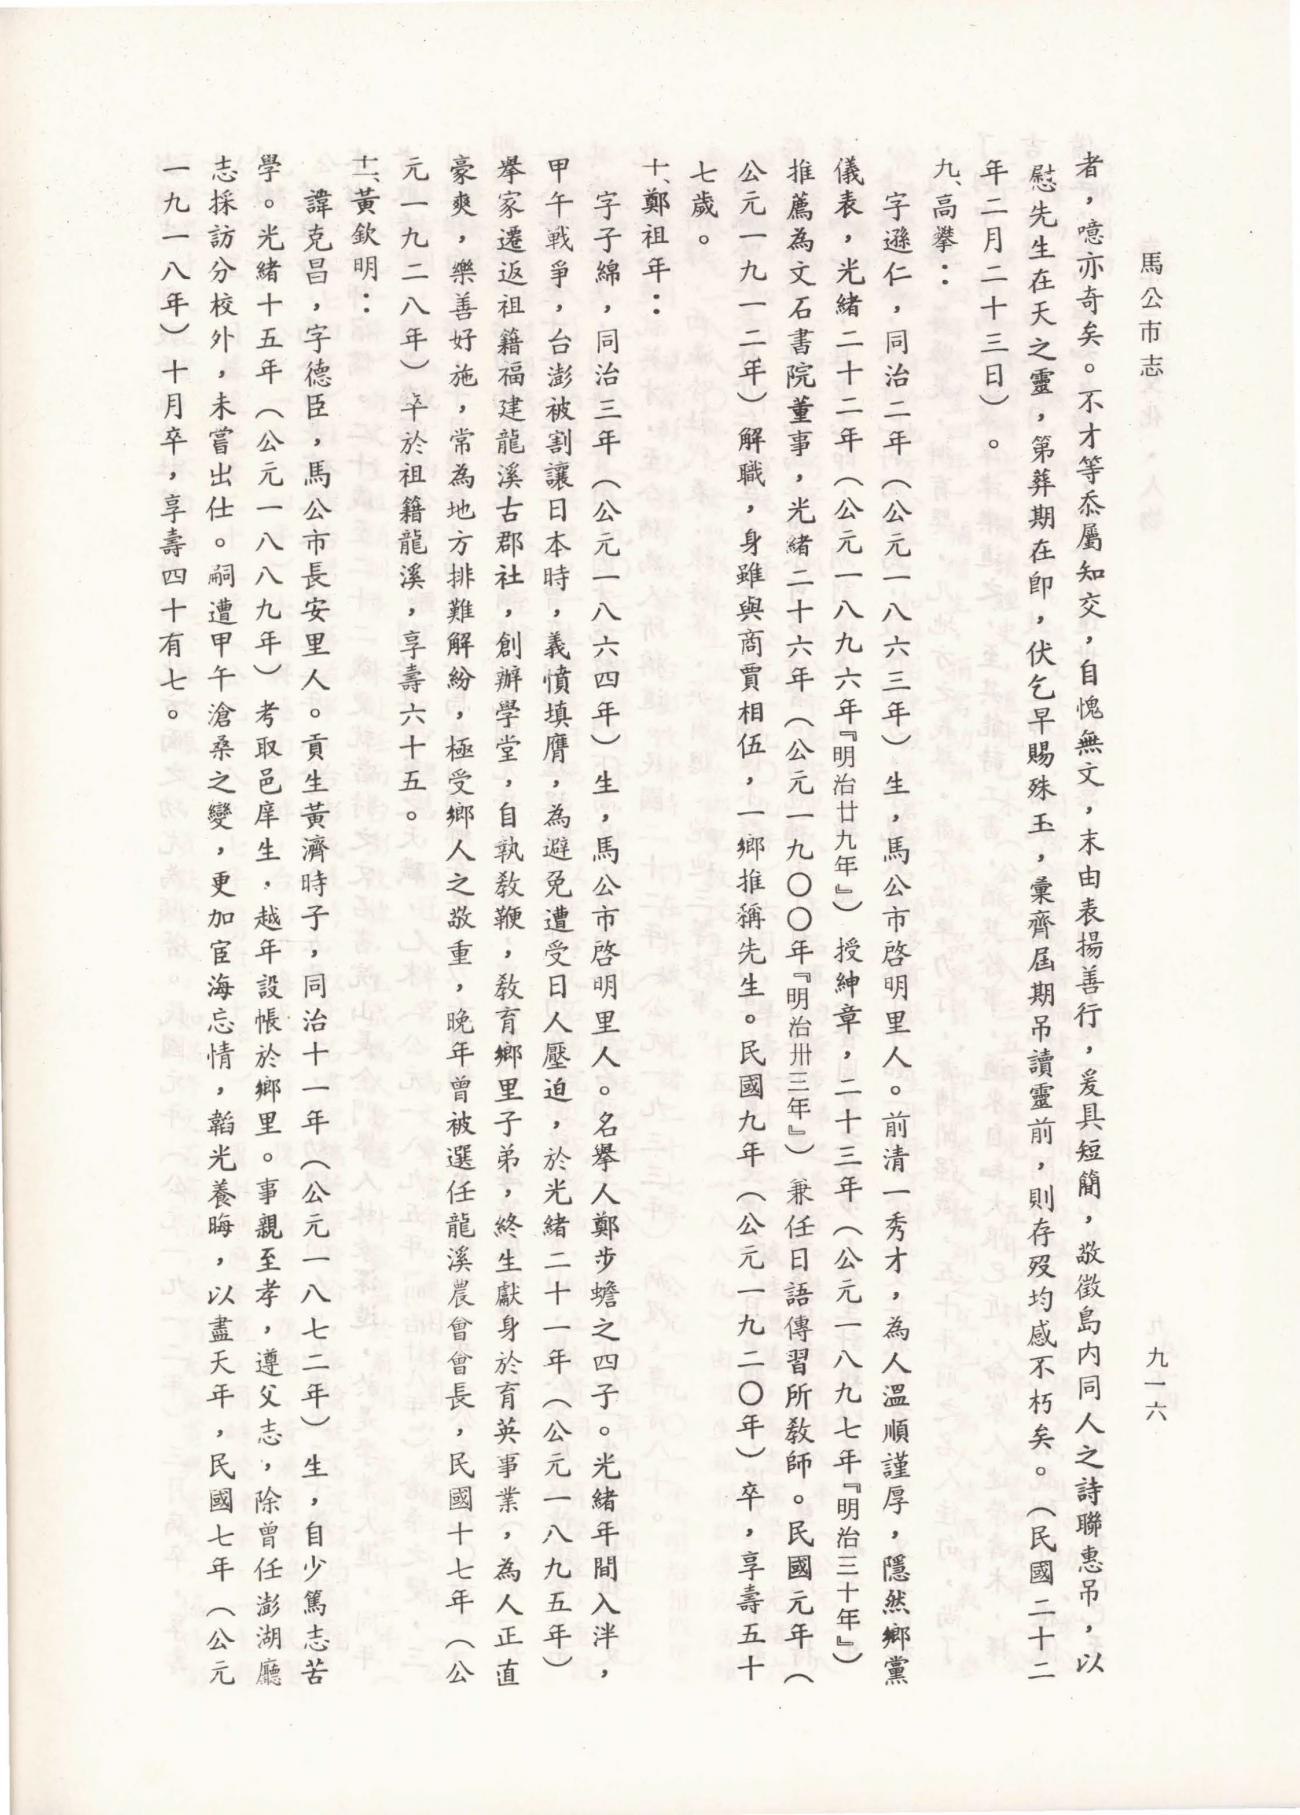 馬公市志
九一六
者，噫亦奇矣。不才等忝屬知交，自愧無文，末由表揚善行，爰具短簡，敬徵島內同人之詩聯惠吊，以
慰先生在天之靈，第葬期在即，伏乞早賜殊玉，彙齊屆期吊讀靈前，則存歿均感不朽矣。（民國二十二
年二月二十三日）。
九、高攀：
字遜仁，同治二年（公元一八六三年）生，馬公市啓明里人。前清一秀才，為人溫順謹厚，隱然鄉黨
儀表，光緒二十二年（公元一八九六年『明治廿九年』）授紳章，二十三年（公元一八九七年『明治三十年』）
推薦為文石書院董事，光緒二十六年（公元一九〇〇年『明治卅三年』）兼任日語傳習所敎師。民國元年（
公元一九一二年）解職，身雖與商賈相伍，一鄉推稱先生。民國九年（公元一九二〇年）卒，享壽五十
七歲。
十、鄭祖年：
字子綿，同治三年（公元一八六四年）生，馬公市啓明里人。名擧人鄭步蟾之四子。光緒年間入泮，
甲午戰爭，台澎被割讓日本時，義憤填膺，為避免遭受日人壓迫，於光緒二十一年（公元一八九五年）
擧家遷返祖籍福建龍溪古郡社，創辦學堂，自執敎鞭，敎育鄉里子弟，終生獻身於育英事業，為人正直
豪爽，樂善好施，常為地方排難解紛，極受鄉人之敬重，晚年曾被選任龍溪農會會長，民國十七年（公
元一九二八年）卒於祖籍龍溪，享壽六十五。
十一、黃欽明：
諱克昌，字德臣，馬公市長安里人。貢生黃濟時子，同治十一年（公元一八七二年）生，自少篤志苦
學。光緒十五年（公元一八八九年）考取邑庠生，越年設帳於鄉里。事親至孝，遵父志，除曾任澎湖廳
志採訪分校外，未嘗出仕。嗣遭甲午滄桑之變，更加宦海忘情，韜光養晦，以盡天年，民國七年（公元
一九一八年）十月卒，享壽四十有七。